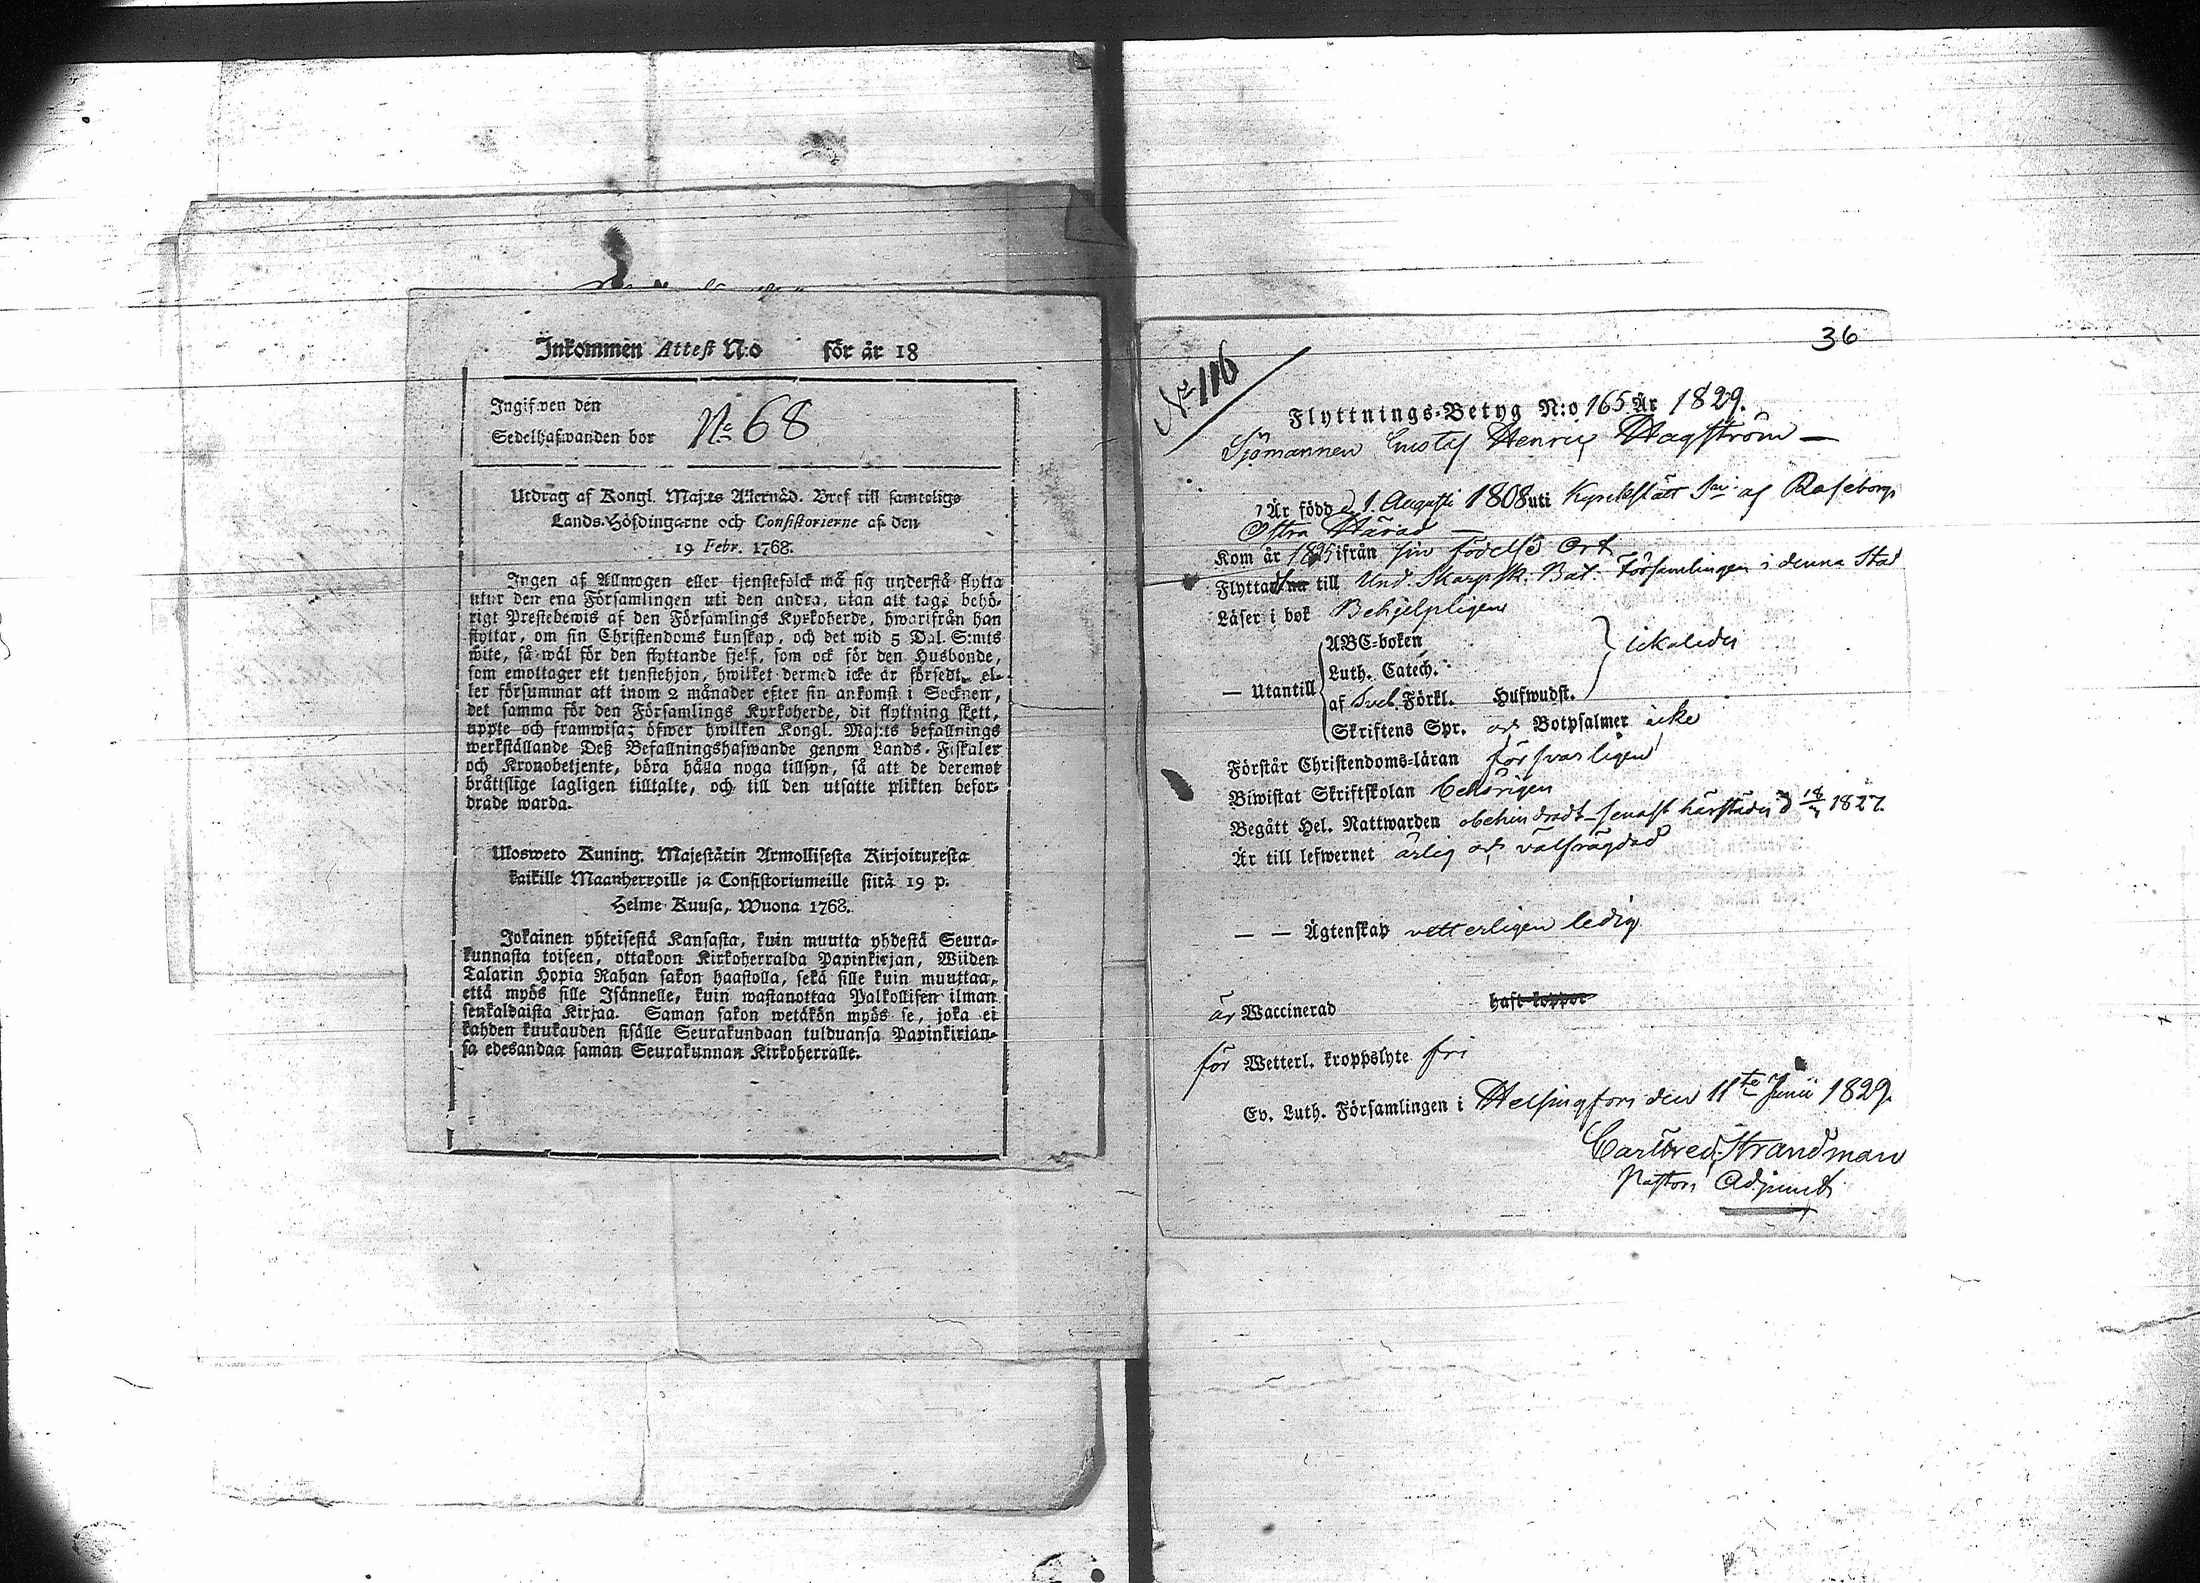 Inkommen Attest N:o för år 18
Ingifwen den
Sedelhafwanden bor
No 68
Utdrag af Kongl. Maj:ts Allernåd. Bref till samtelige
Lands-Höfdingarne och Consistorierne af den
19 Febr. 1768.
Ingen af Allmogen eller tjenstefolck må sig understå flytta
utur den ena Församlingen uti den andra, utan att taga behö-
rigt Prestebewis af den Församlings Kyrkoherde, hwarifrån han
flyttar, om sin Christendoms kunskap, och det wid 5 Dal. S:mts
wite, så wäl för den flyttande sjelf, som ock för den Husbonde,
som emottager ett tjenstehjon, hwilket dermed icke är försedt, el-
ler försummar att inom 2 månader efter sin ankomst i Socknen,
det samma för den Församlings Kyrkoherde, dit flyttning skett,
uppte och framwisa; öfwer hwilken Kongl. Maj:ts befallnings
werkställande Deß Befallningshafwande genom Lands-Fiskaler
och Kronobetjente, böra hålla noga tillsyn, så att de deremot
bråttslige lagligen tilltalte, och till den utsatte plikten befor-
drade warda.
Uloswero Kuning. Majestätin Armollisesta Kirjoituresta
kaikille Maanherroille ja Consistoriumeille siitä 19 p.
Helme-Kuusa, Wuona 1768.
Jokainen yhteisestä Kansasta, kuin muutta yhdestä Seura-
kunnasta toiseen, ottakoon Kirkoherralda Papinkirjan, Wiiden
Talarin Hopia Rahan sakon haastolla, sekä sille kuin muuttaa,
että myös sille Isännelle, kuin wastanottaa Palkollisen ilman
senkaldaista Kirjaa. Saman sakon wetäkön myös se, joka ei
kahden kuukauden sisälle Seurakundaan tulduansa Papinkirjan-
sa edesandaa saman Seurakunnan Kirkoherralle.
36
No 116
Flyttnings-Betyg N:o 165 År 1829.
Sjömannen Gustaf Henric Hagström —
Är född d 1. Augusti 1808 uti Kyrckslätt Sn af Raseborgs
Östra Härad —
Kom år 1825 ifrån sin födelse Ort
Flyttar till Und. Skarpsk. Bat. Församlingen i denna Stad
Läser i bok Behjelpligen
— Utantill
ABC-boken
Luth. Catech.
af Sveb. Förkl. Hufwudst.
ickaledes
Skriftens Spr. och Botpsalmer icke
Förstår Christendoms-läran försvarligen
Biwistat Skriftskolan behörigen
Begått Hel. Nattwarden obehindradt senast härstädes d 18/ 1827.
Är till lefwernet ärlig och välfrägdad
— — Ägtenskap vetterligen ledig
är Waccinerad haft koppor
för Wetterl. kroppslyte fri
Ev. Luth. Församlingen i Helsingfors den 11te Junii 1829.
Strandman
Pastors Adjunct